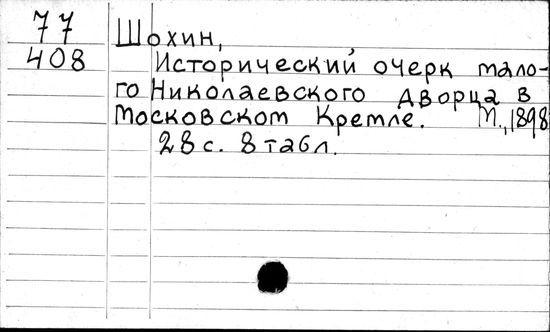 77
408
Шохин,
Исторический очерк мало-
го Николаевского дворца в
Московском Кремле. М., 1898
28 с. 8 табл.